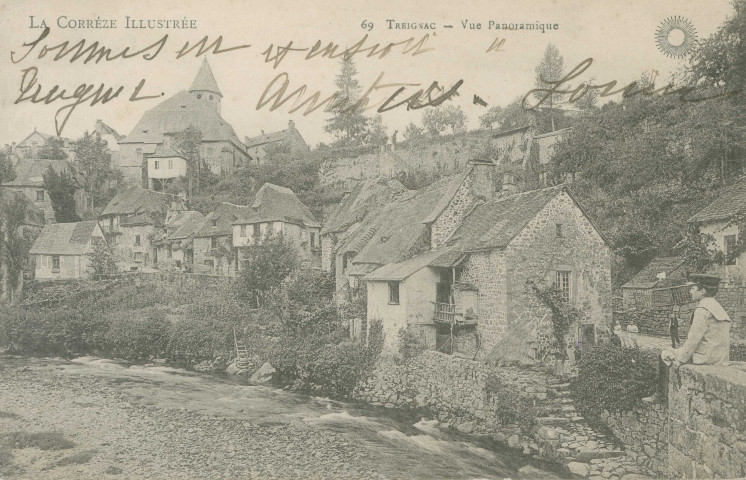 LA CORRÈZE ILLUSTRÉE
69 TREIGNAC — Vue Panoramique
Sommes en excursion à
Treignac. Amitiés. Louise